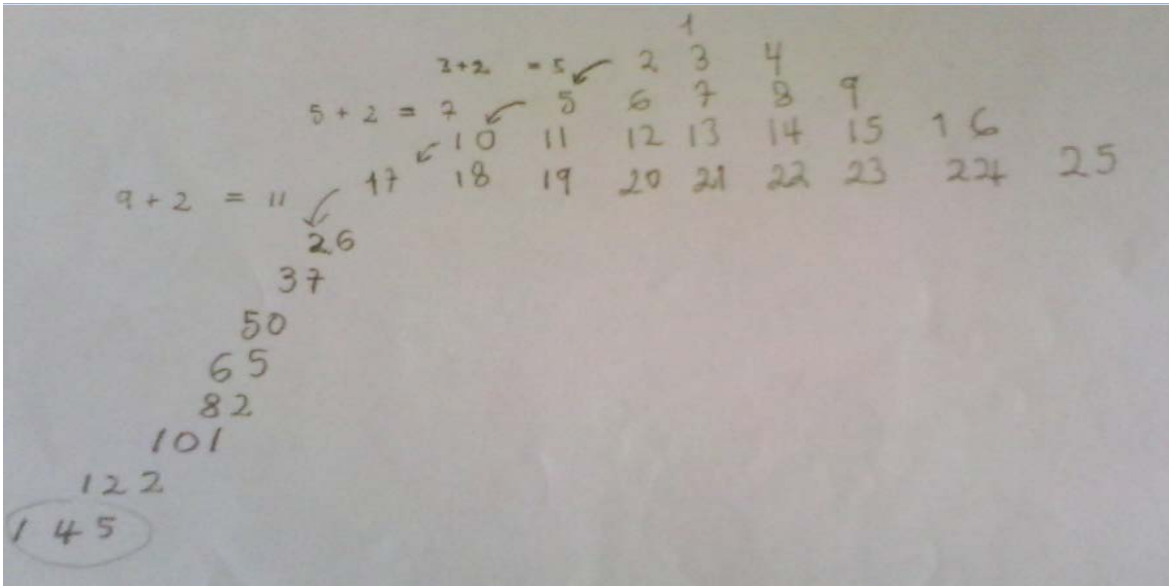 1
3+2 = 5 2 3 4
5 + 2 = 7 5 6 7 8 9
10 11 12 13 14 15 16
17 18 19 20 21 22 23 24 25
9 + 2 = 11
26
37
50
65
82
101
122
145